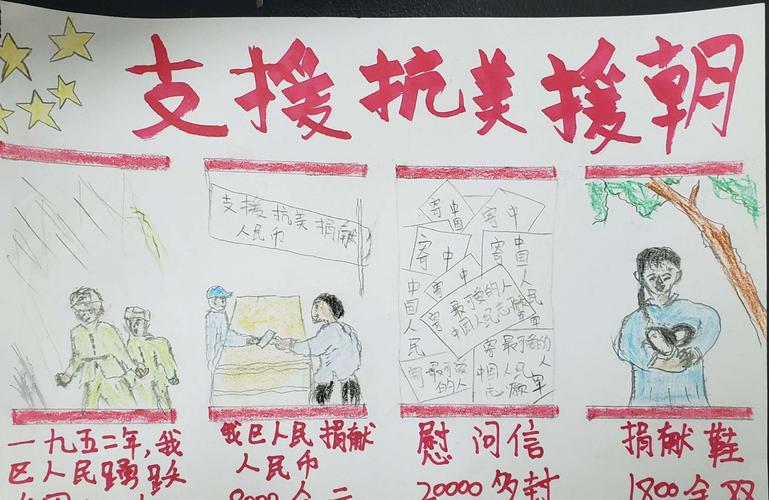 支援抗美援朝
支援抗美捐献
人民币
寄中国
寄中
寄中
寄中国人民
中国人民
寄最可爱的人
中国人民志愿军
寄最可爱的人
寄最可爱的人
中国人民志愿军
一九五二年,我
区人民踊跃
我区人民捐献
人民币
慰问信
20000多封
捐献鞋
1800余双